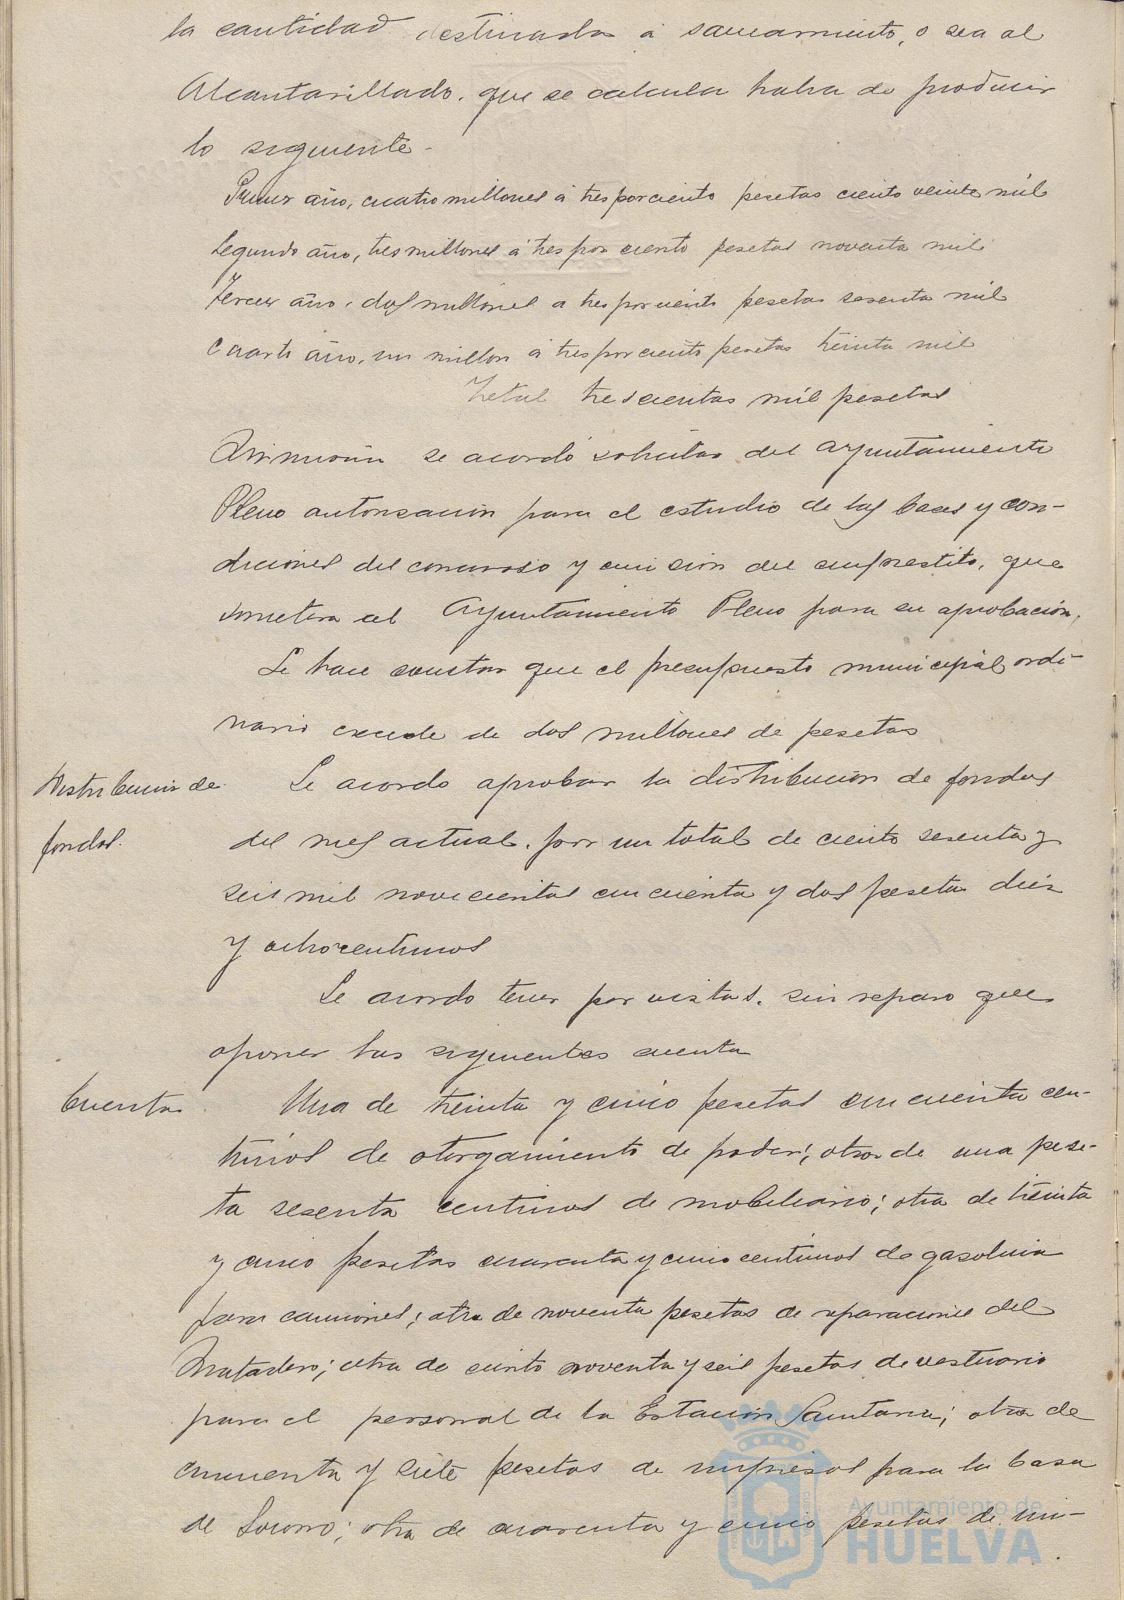 la cantidad destinada a saneamiento, o sea al
Alcantarillado, que se calcula habra de producir
lo siguiente.
Primer año, cuatro millones á tres por ciento pesetas ciento veinte mil
Segundo año, tres millones á tres por ciento pesetas noventa mil
Tercer año, dos millones a tres por ciento pesetas sesenta mil
Cuarto año, un millon á tres por ciento pesetas treinta mil
Total trescientas mil pesetas
Asimismo se acordó solicitar del Ayuntamiento
Pleno autorizacion para el estudio de las bases y con-
diciones del concurso y emision del emprestito, que
sometera al Ayuntamiento Pleno para su aprobación.
Se hace constar que el presupuesto municipal ordi-
nario excede de dos millones de pesetas
Distribucion de
fondos.
Se acordo aprobar la distribucion de fondos
del mes actual, por un total de ciento sesenta y
seis mil novecientas cincuenta y dos pesetas diez
y ocho centimos
Se acordo tener por vistas, sin reparo que
oponer las siguientes cuentas
Cuentas
Una de treinta y cinco pesetas cincuenta cen-
timos de otorgamiento de poder; otra de una pese-
ta sesenta centimos de mobiliario; otra de treinta
y cinco pesetas cuarenta y cinco centimos de gasolina
para camiones; otra de noventa pesetas de reparaciones del
Matadero; otra de ciento noventa y seis pesetas de vestuario
para el personal de la Estacion Sanitaria; otra de
cincuenta y siete pesetas de impresos para la Casa
de Socorro; otra de cuarenta y cinco pesetas de im-
Ayuntamiento de
HUELVA